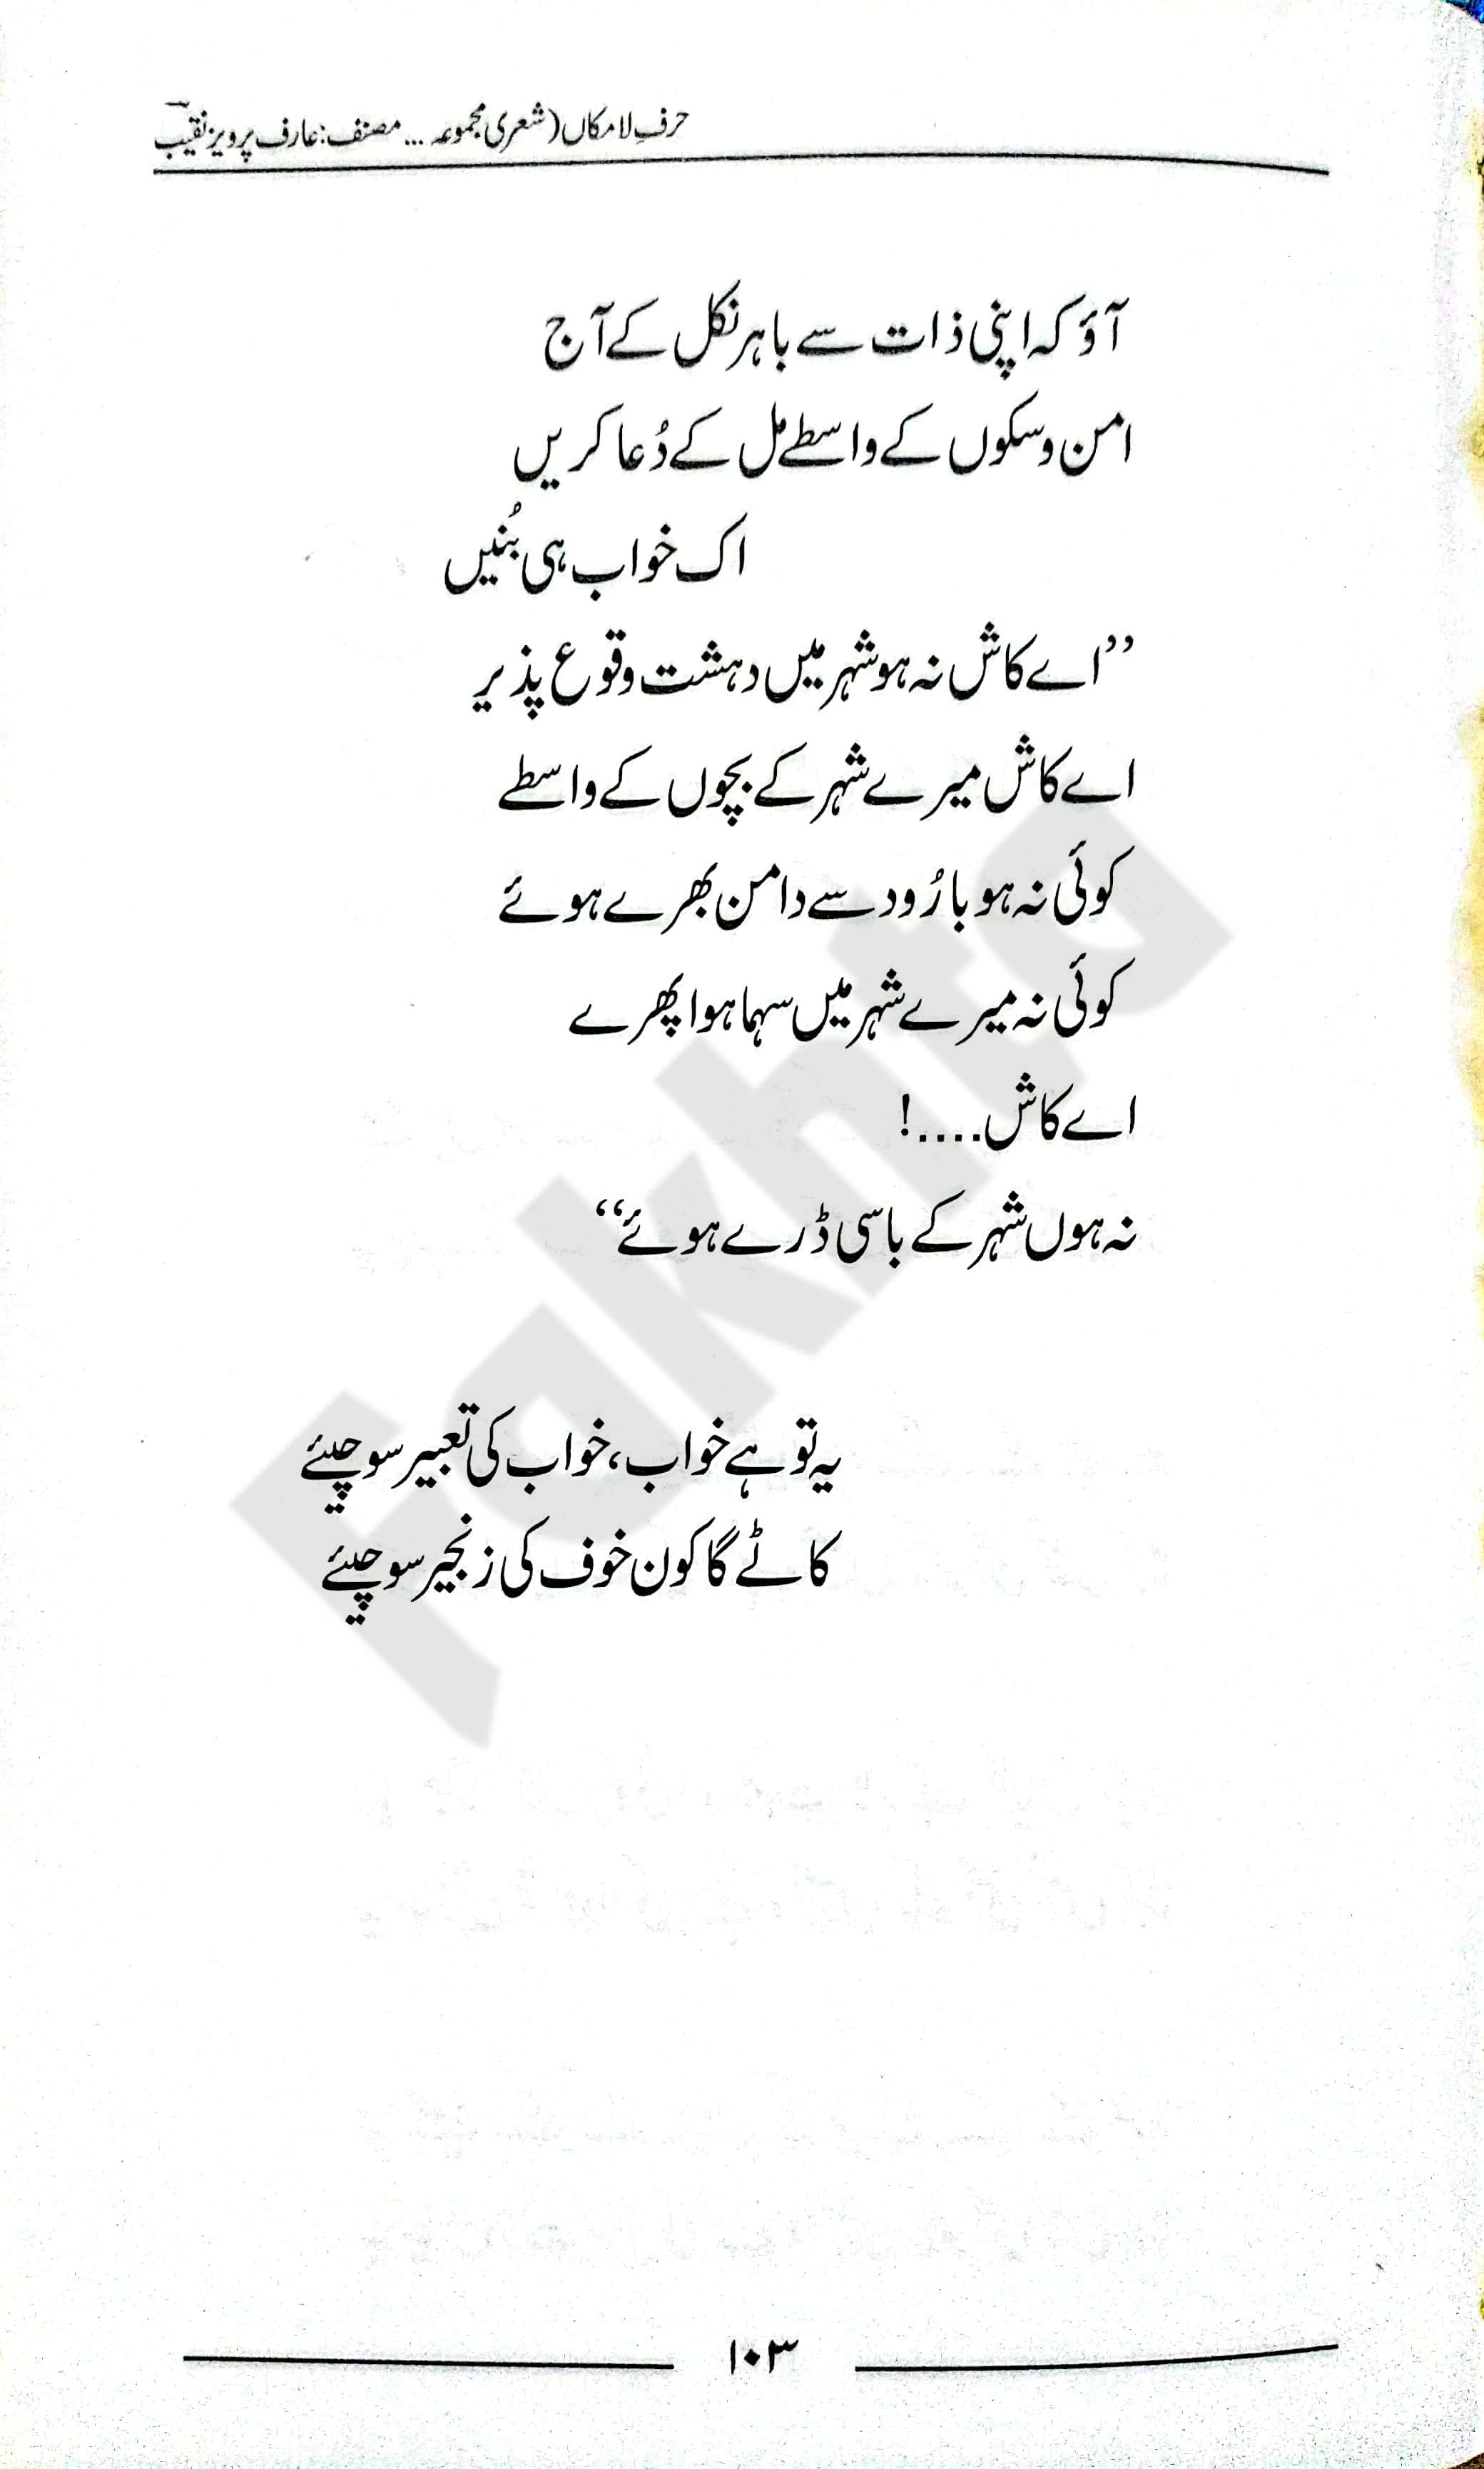 حرفِ لامکاں (شعری مجموعہ ... مصنف: عارف پرویز نقیبؔ
آؤ کہ اپنی ذات سے باہر نکل کے آج
امن و سکوں کے واسطے مل کے دُعا کریں
اک خواب ہی بُنیں
”اے کاش نہ ہو شہر میں دہشت وقوع پذیر
اے کاش میرے شہر کے بچوں کے واسطے
کوئی نہ ہو بارُود سے دامن بھرے ہوئے
کوئی نہ میرے شہر میں سہما ہوا پھرے
اے کاش....!
نہ ہوں شہر کے باسی ڈرے ہوئے“
یہ تو ہے خواب، خواب کی تعبیر سوچیئے
کاٹے گا کون خوف کی زنجیر سوچیئے
۱۰۳
Fakhta